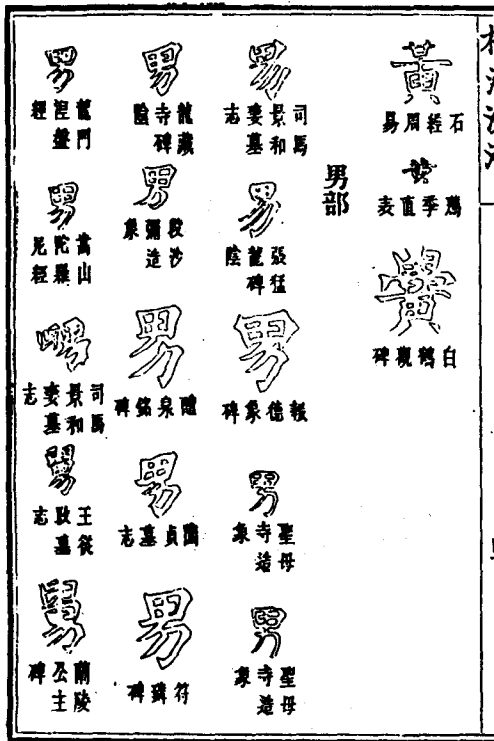 黃
石經周易
黃
薦季直表
黌
白鶴觀碑
男部
男
司馬景和妻墓志
男
張猛龍碑陰
男
報德象碑
男
聖母寺造象
男
聖母寺造象
男
龍藏寺碑陰
男
段沙彌造象
男
醴泉銘碑
男
貞墓志
男
符璘碑
男
龍門涅盤經
男
嵩山陀羅尼經
甥
司馬景和妻墓志
舅
王從政墓志
舅
蘭陵公主碑